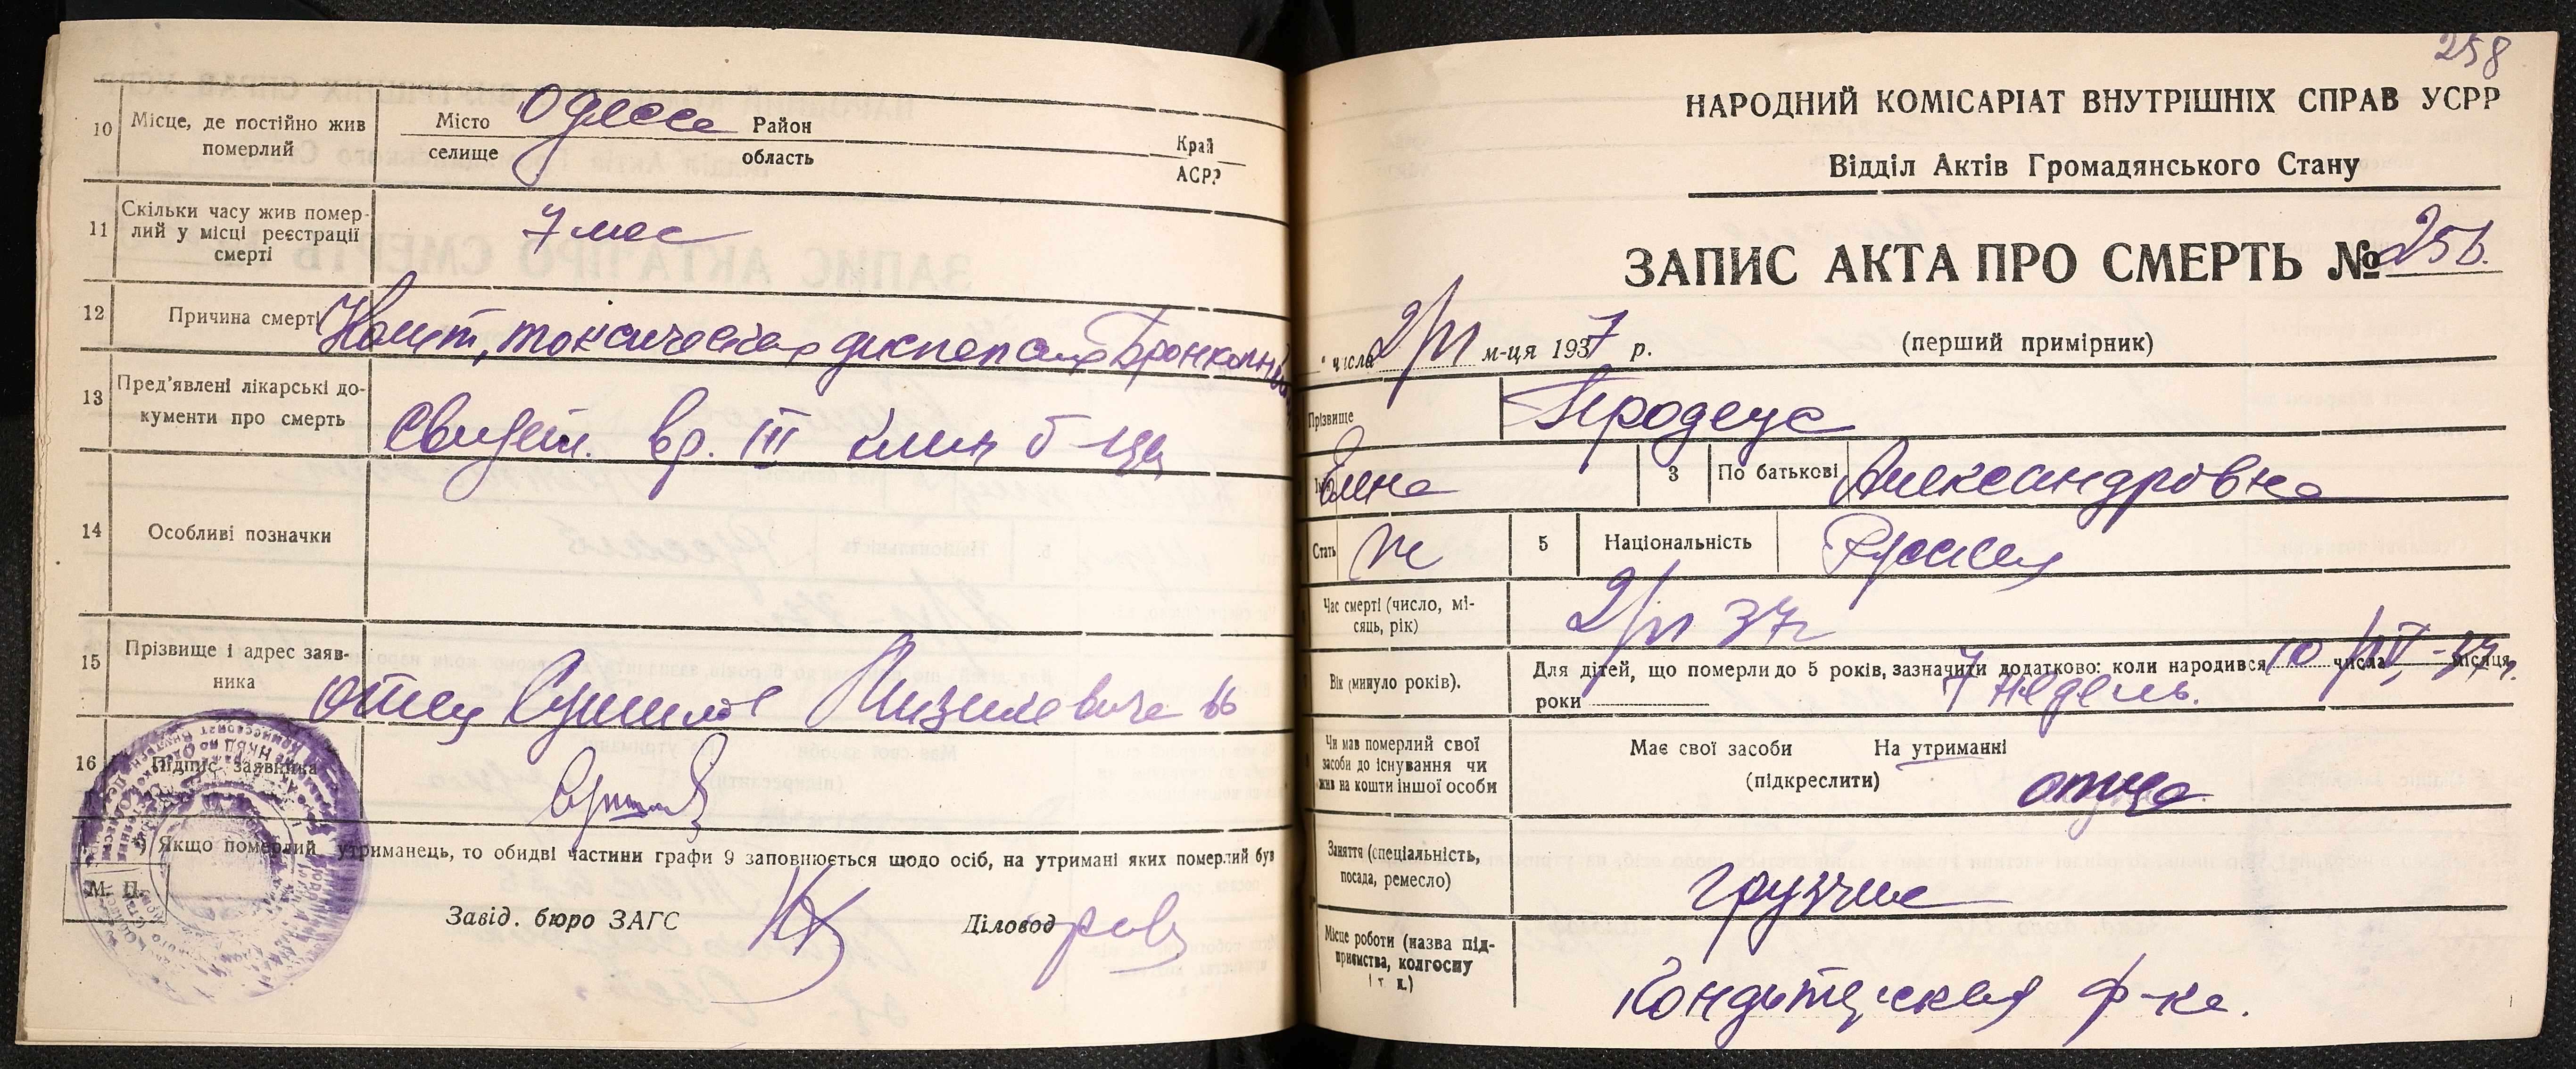 10
Місце, де постійно жив
померлий
Місто Одесса Район
селище
область
Край
АСРР
11
Скільки часу жив помер-
лий у місці реєстрації
смерті
7 мес
12
Причина смерті
токсическая диспепсия Бронхопн
13
Пред'явлені лікарські до-
кументи про смерть
Свидет. вр. III клин б-цы
14
Особливі позначки
15
Прізвище і адрес заяв-
ника
отец
66
16
Підпис заявника
Якщо померлий утриманець, то обидві частини графи 9 заповнюється щодо осіб, на утримані яких померлий був
М. П.
Завід. бюро ЗАГС
Діловод
258
НАРОДНИЙ КОМІСАРІАТ ВНУТРІШНІХ СПРАВ УСРР
Відділ Актів Громадянського Стану
ЗАПИС АКТА ПРО СМЕРТЬ №
" числа 2/VI м-ця 1937 р.
(перший примірник)
Прізвище
Продеус
Ім'я Елена
3
По батькові
Александровна
Стать
ж
5
Національність
Русская
Час смерті (число, мі-
сяць, рік)
2/VI 37г
Вік (минуло років).
Для дітей, що померли до 5 років, зазначити додатково: коли народився 10 числа /IV-37г. місяця,
роки
7 недель.
Чи мав померлий свої
засоби до існування чи
жив на кошти іншої особи
Має свої засоби На утриманні
(підкреслити)
отца
Заняття (спеціальність,
посада, ремесло)
грузчик
Місце роботи (назва під-
приємства, колгоспу
і т. п.)
Кондитерская ф-ка.